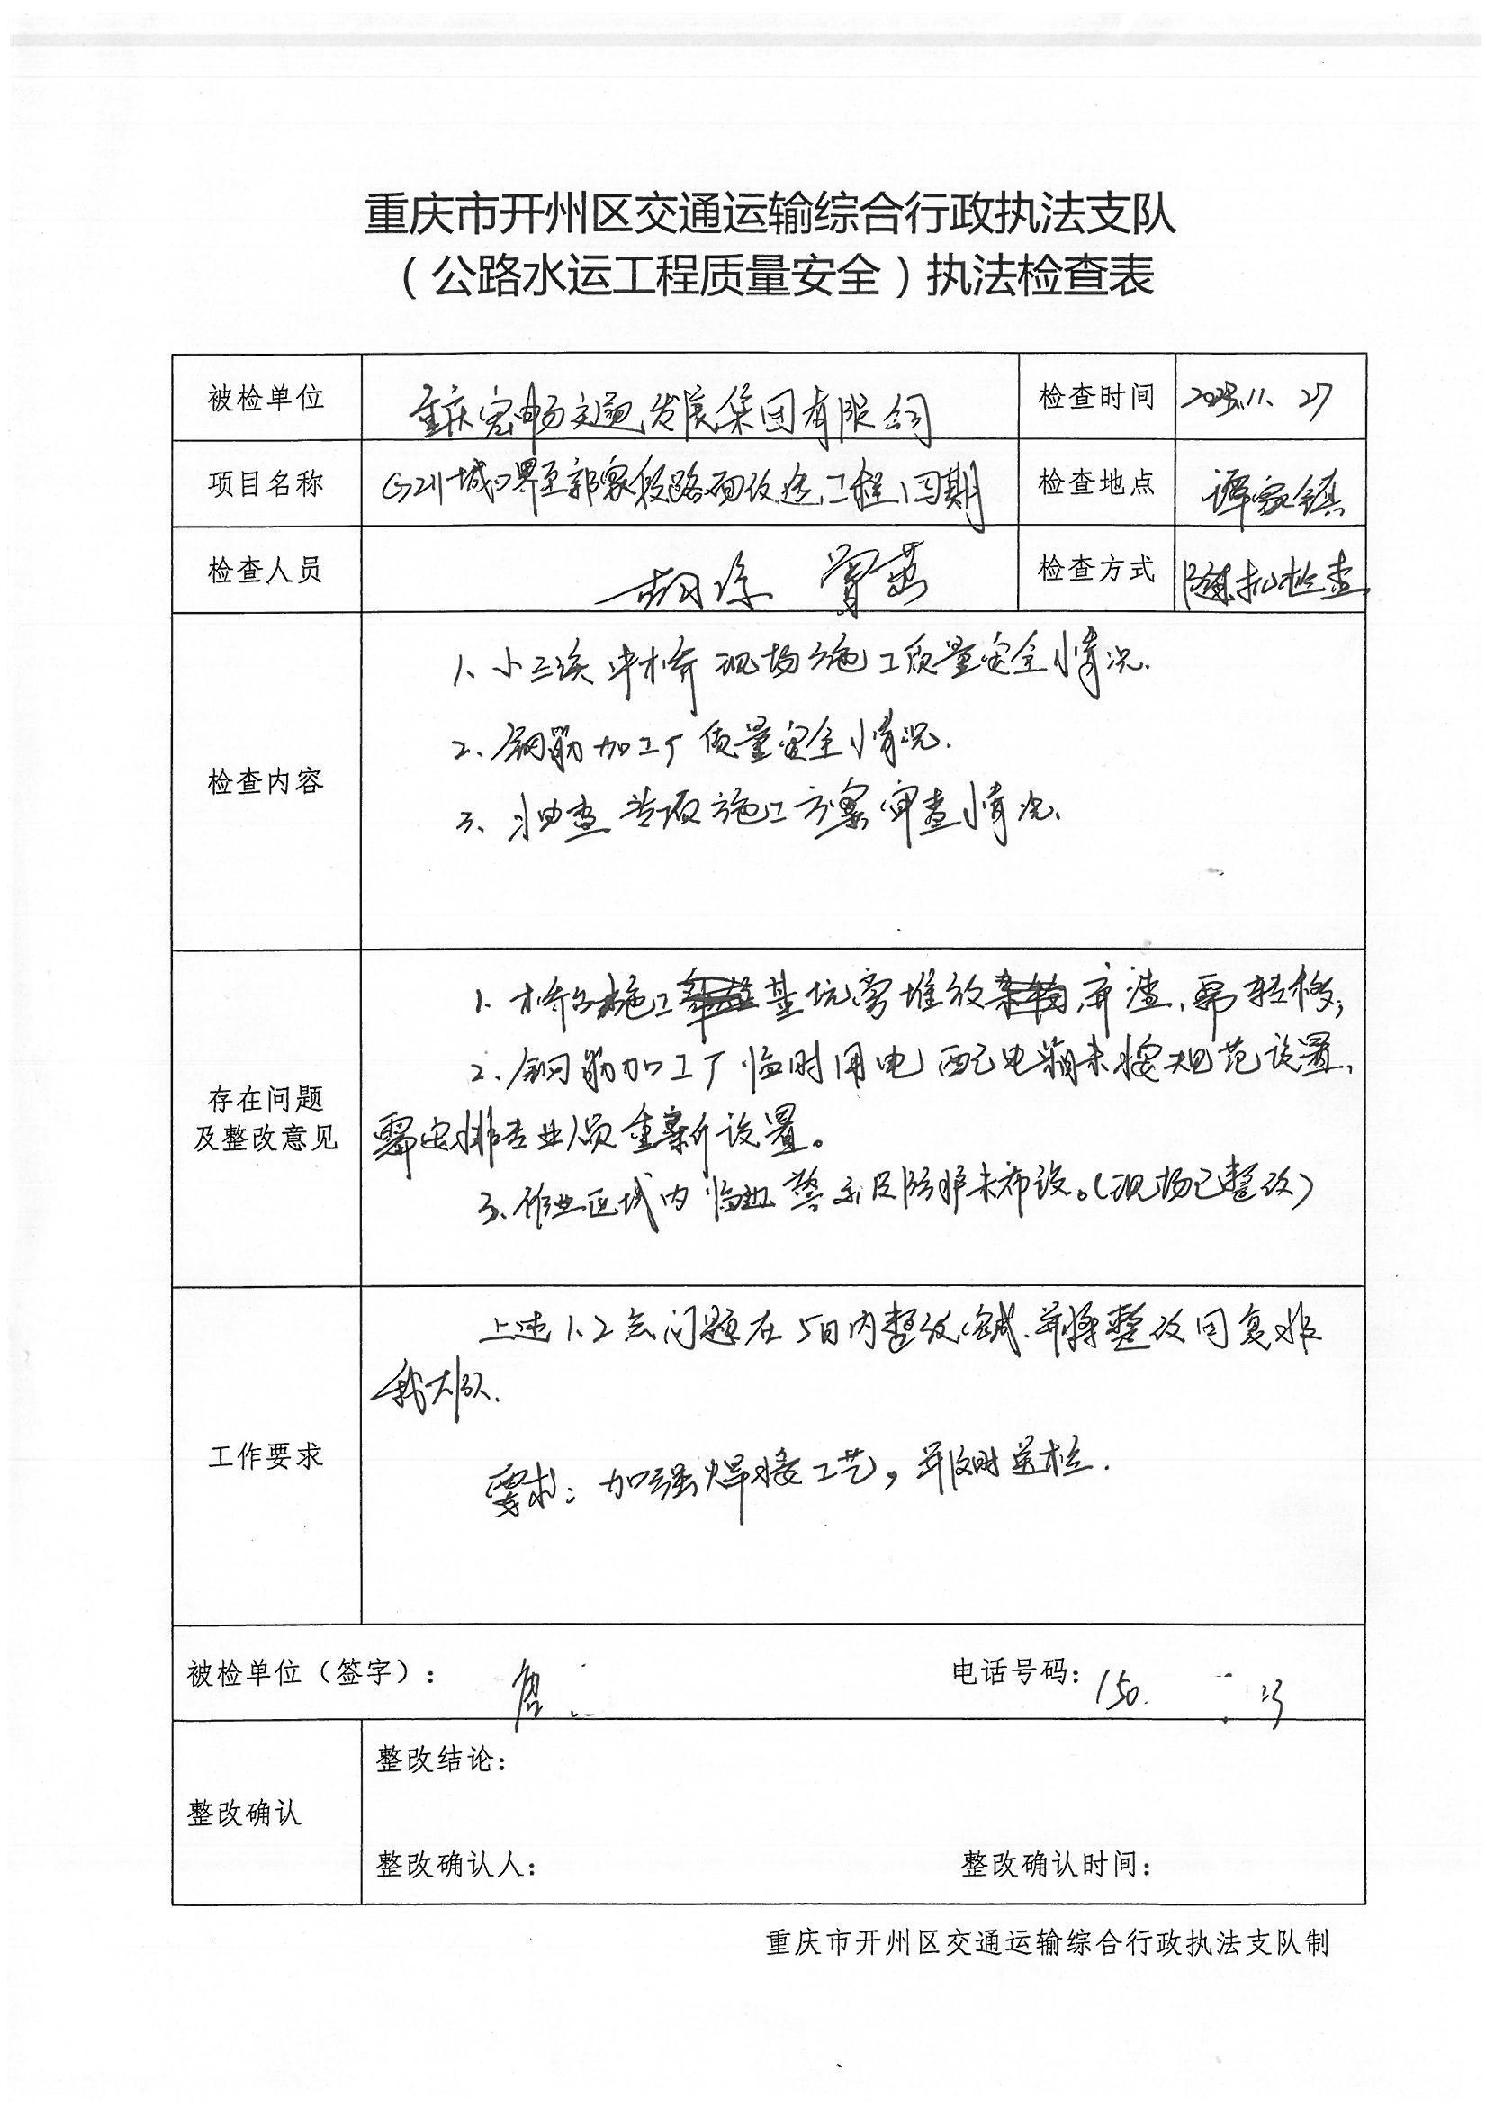 重庆市开州区交通运输综合行政执法支队
（公路水运工程质量安全）执法检查表
被检单位 重庆宏畅交通发展集团有限公司 检查时间 11、27
项目名称 G211城口界至郭家段路面改造工程(四期 检查地点 谭家镇
检查人员 胡 曾 检查方式 随机检查
检查内容
1、小三溪中桥现场施工质量安全情况.
2、钢筋加工厂质量安全情况.
3、抽查专项施工方案审查情况.
存在问题
及整改意见
1、桥台施工基坑旁堆放弃渣，需转移；
2、钢筋加工厂临时用电配电箱未按规范设置，
需安排专业人员重新设置。
3、作业区域内临边警示及防护未布设。（现场已整改）
工作要求
上述1、2点问题在5日内整改完成，并将整改回复报
我大队.
要求：加强焊接工艺，并及时送检.
被检单位（签字）： 唐 电话号码：150
整改确认
整改结论：
整改确认人： 整改确认时间：
重庆市开州区交通运输综合行政执法支队制